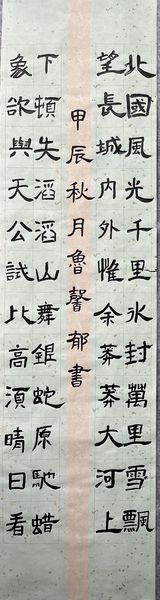 北國風光千里氷封萬里雪飄
望長城内外惟余莽莽大河上
甲辰秋月魯馨郁書
下頓失滔滔山舞銀蛇原馳蜡
象欲與天公試比高湏晴日看